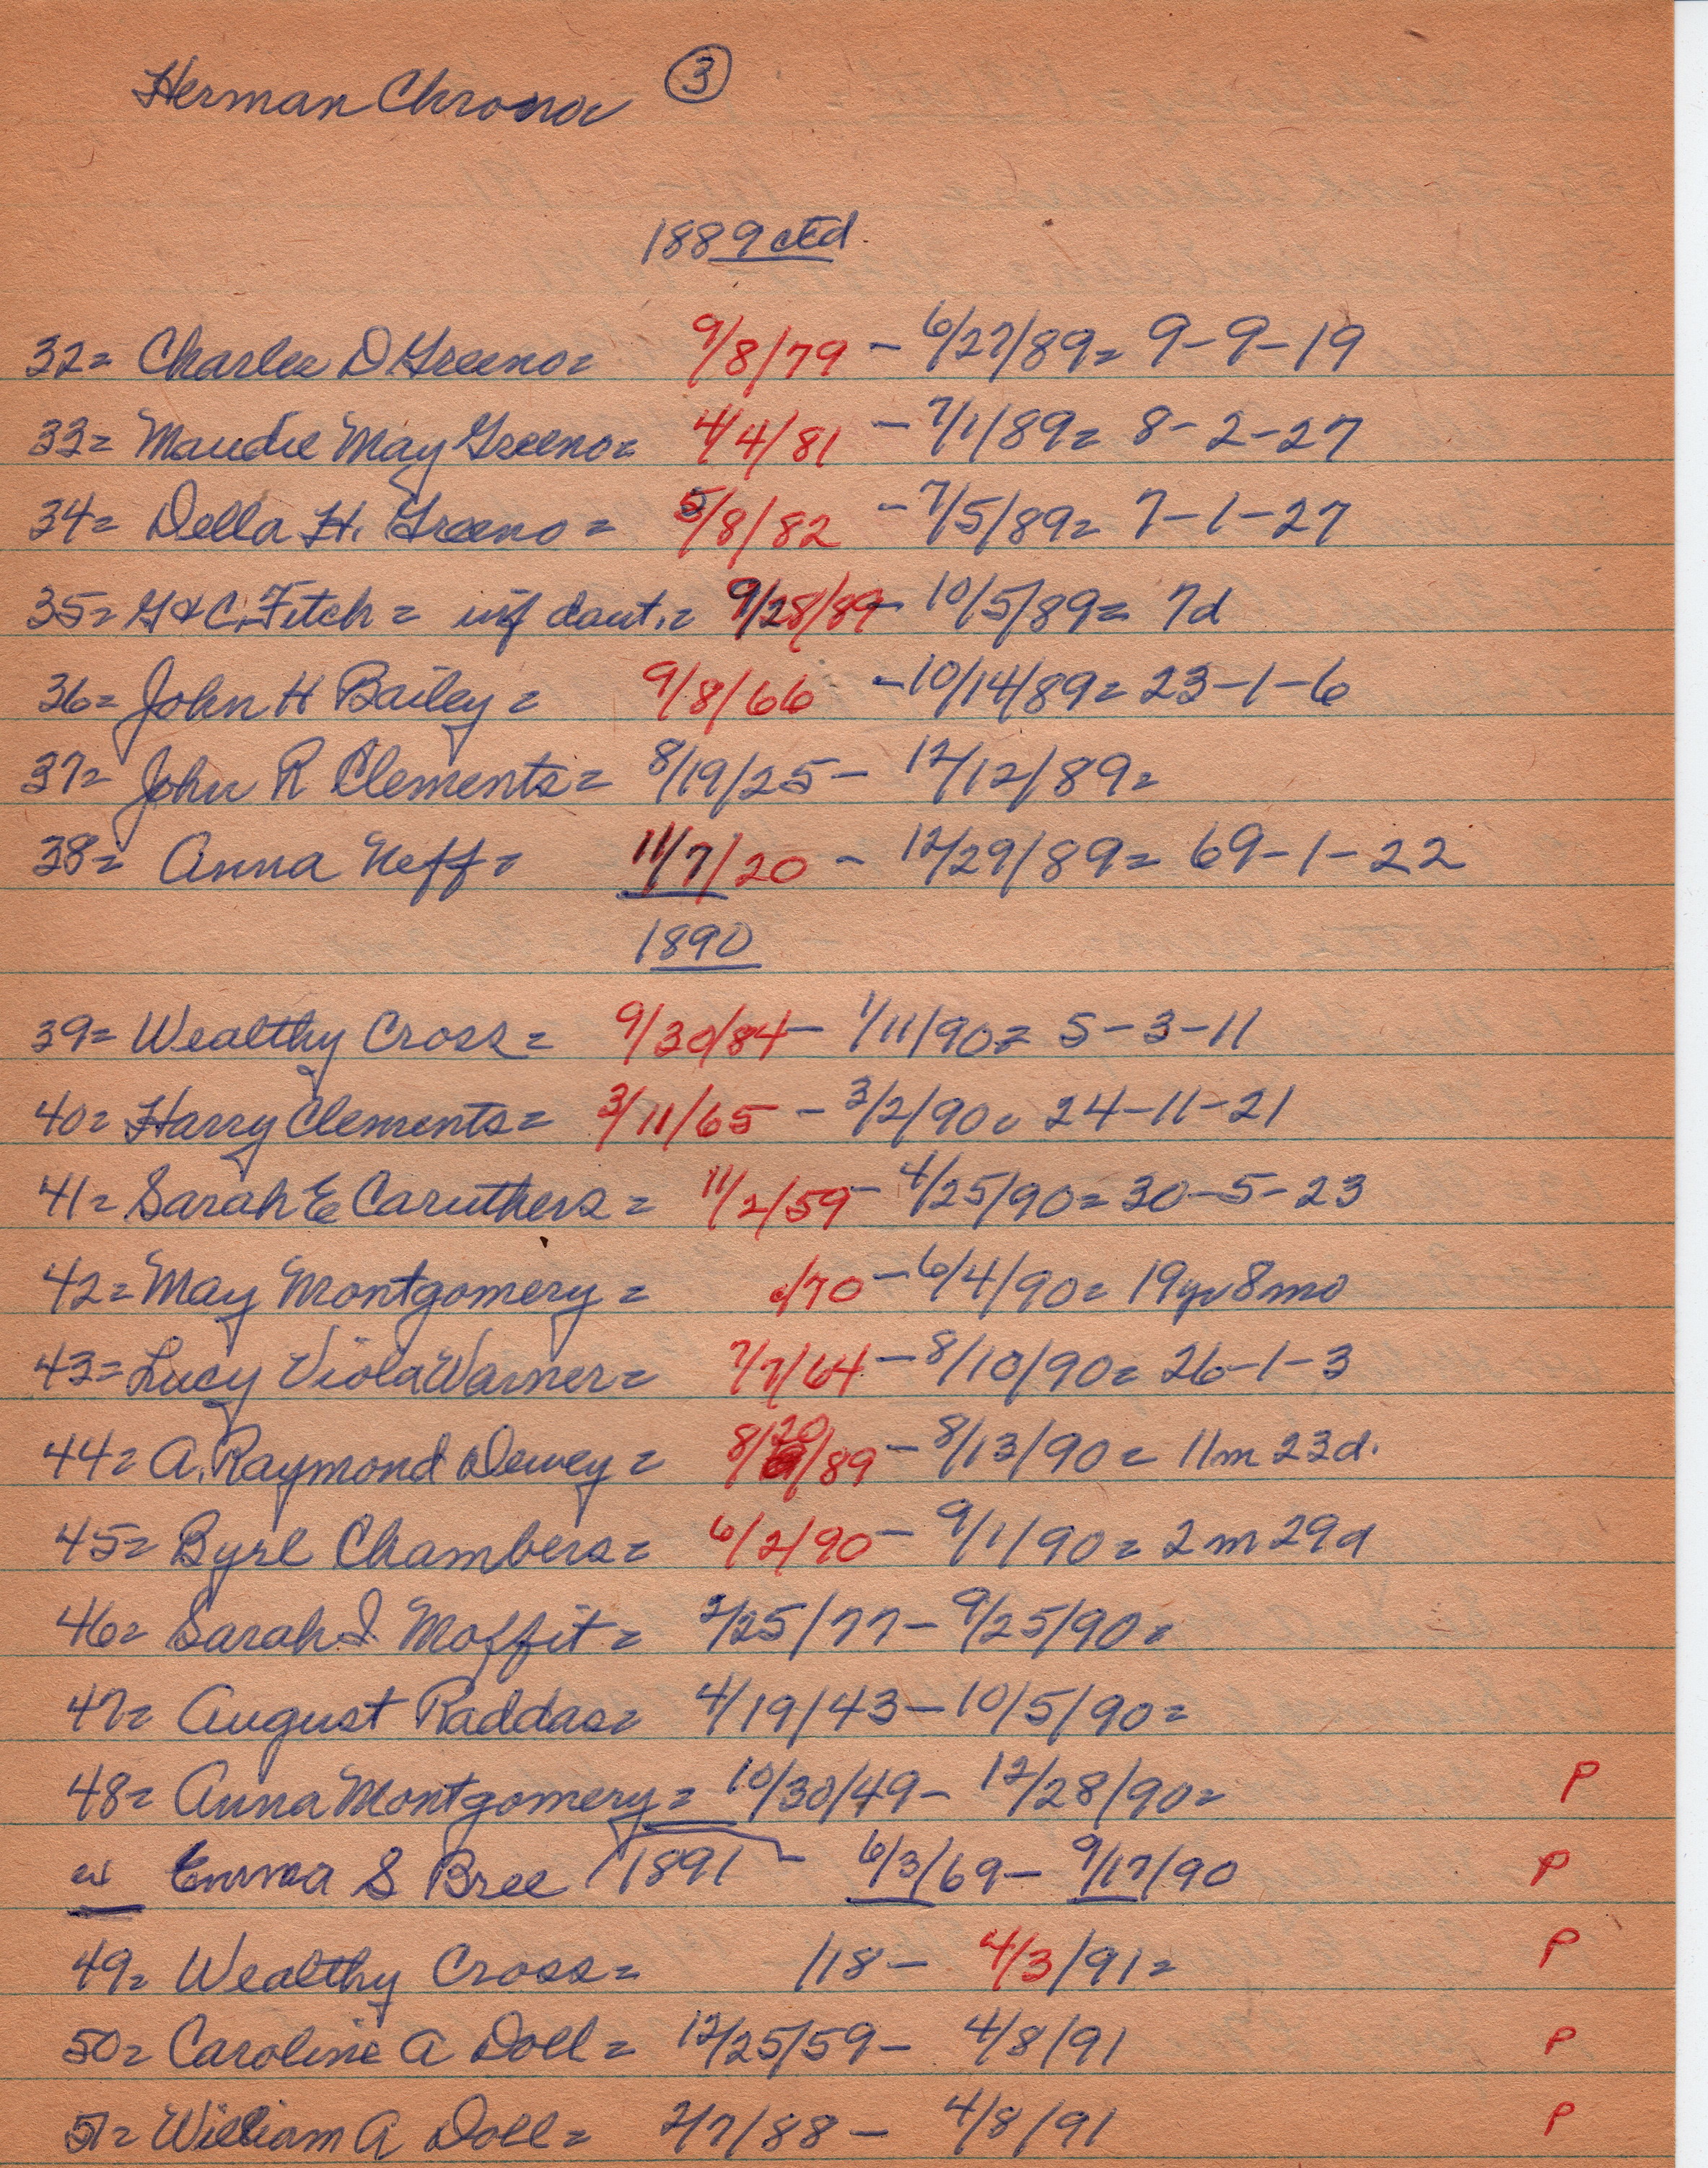 Herman Chrono ③
1889 ctd
32= Charles D Greeno= 9/8/79 - 6/27/89= 9-9-19
33= Maudie May Greeno= 4/4/81 - 7/1/89= 8-2-27
34= Della H. Greeno= 5/8/82 - 7/5/89= 7-1-27
35= G & C. Fitch= inf daut.= 9/28/89 - 10/5/89= 7d
36= John H Bailey= 9/8/66 - 10/14/89= 23-1-6
37= John R Clements= 8/19/25 - 12/12/89=
38= Anna Neff= 11/7/20 - 12/29/89= 69-1-22
1890
39= Wealthy Cross= 9/30/84 - 1/11/90= 5-3-11
40= Harry Clements= 3/11/65 - 3/2/90= 24-11-21
41= Sarah E Caruthers= 11/2/59 - 4/25/90= 30-5-23
42= May Montgomery= /70 - 6/4/90= 19yr 8mo
43= Lucy Viola Warner= 7/7/64 - 8/10/90= 26-1-3
44= A. Raymond Dewey= 8/20/89 - 8/13/90= 11m 23d.
45= Byrl Chambers= 6/2/90 - 9/1/90= 2m 29d
46= Sarah I. Moffit= 2/25/77 - 9/25/90=
47= August Raddas= 4/19/43 - 10/5/90=
48= Anna Montgomery= 10/30/49 - 12/28/90= P
Emma S Bree 1891 - 6/3/69 - 9/17/90 P
49= Wealthy Cross= /18 - 4/3/91= P
50= Caroline A Doll= 12/25/59 - 4/8/91 P
51= William A Doll= 2/7/88 - 4/8/91 P